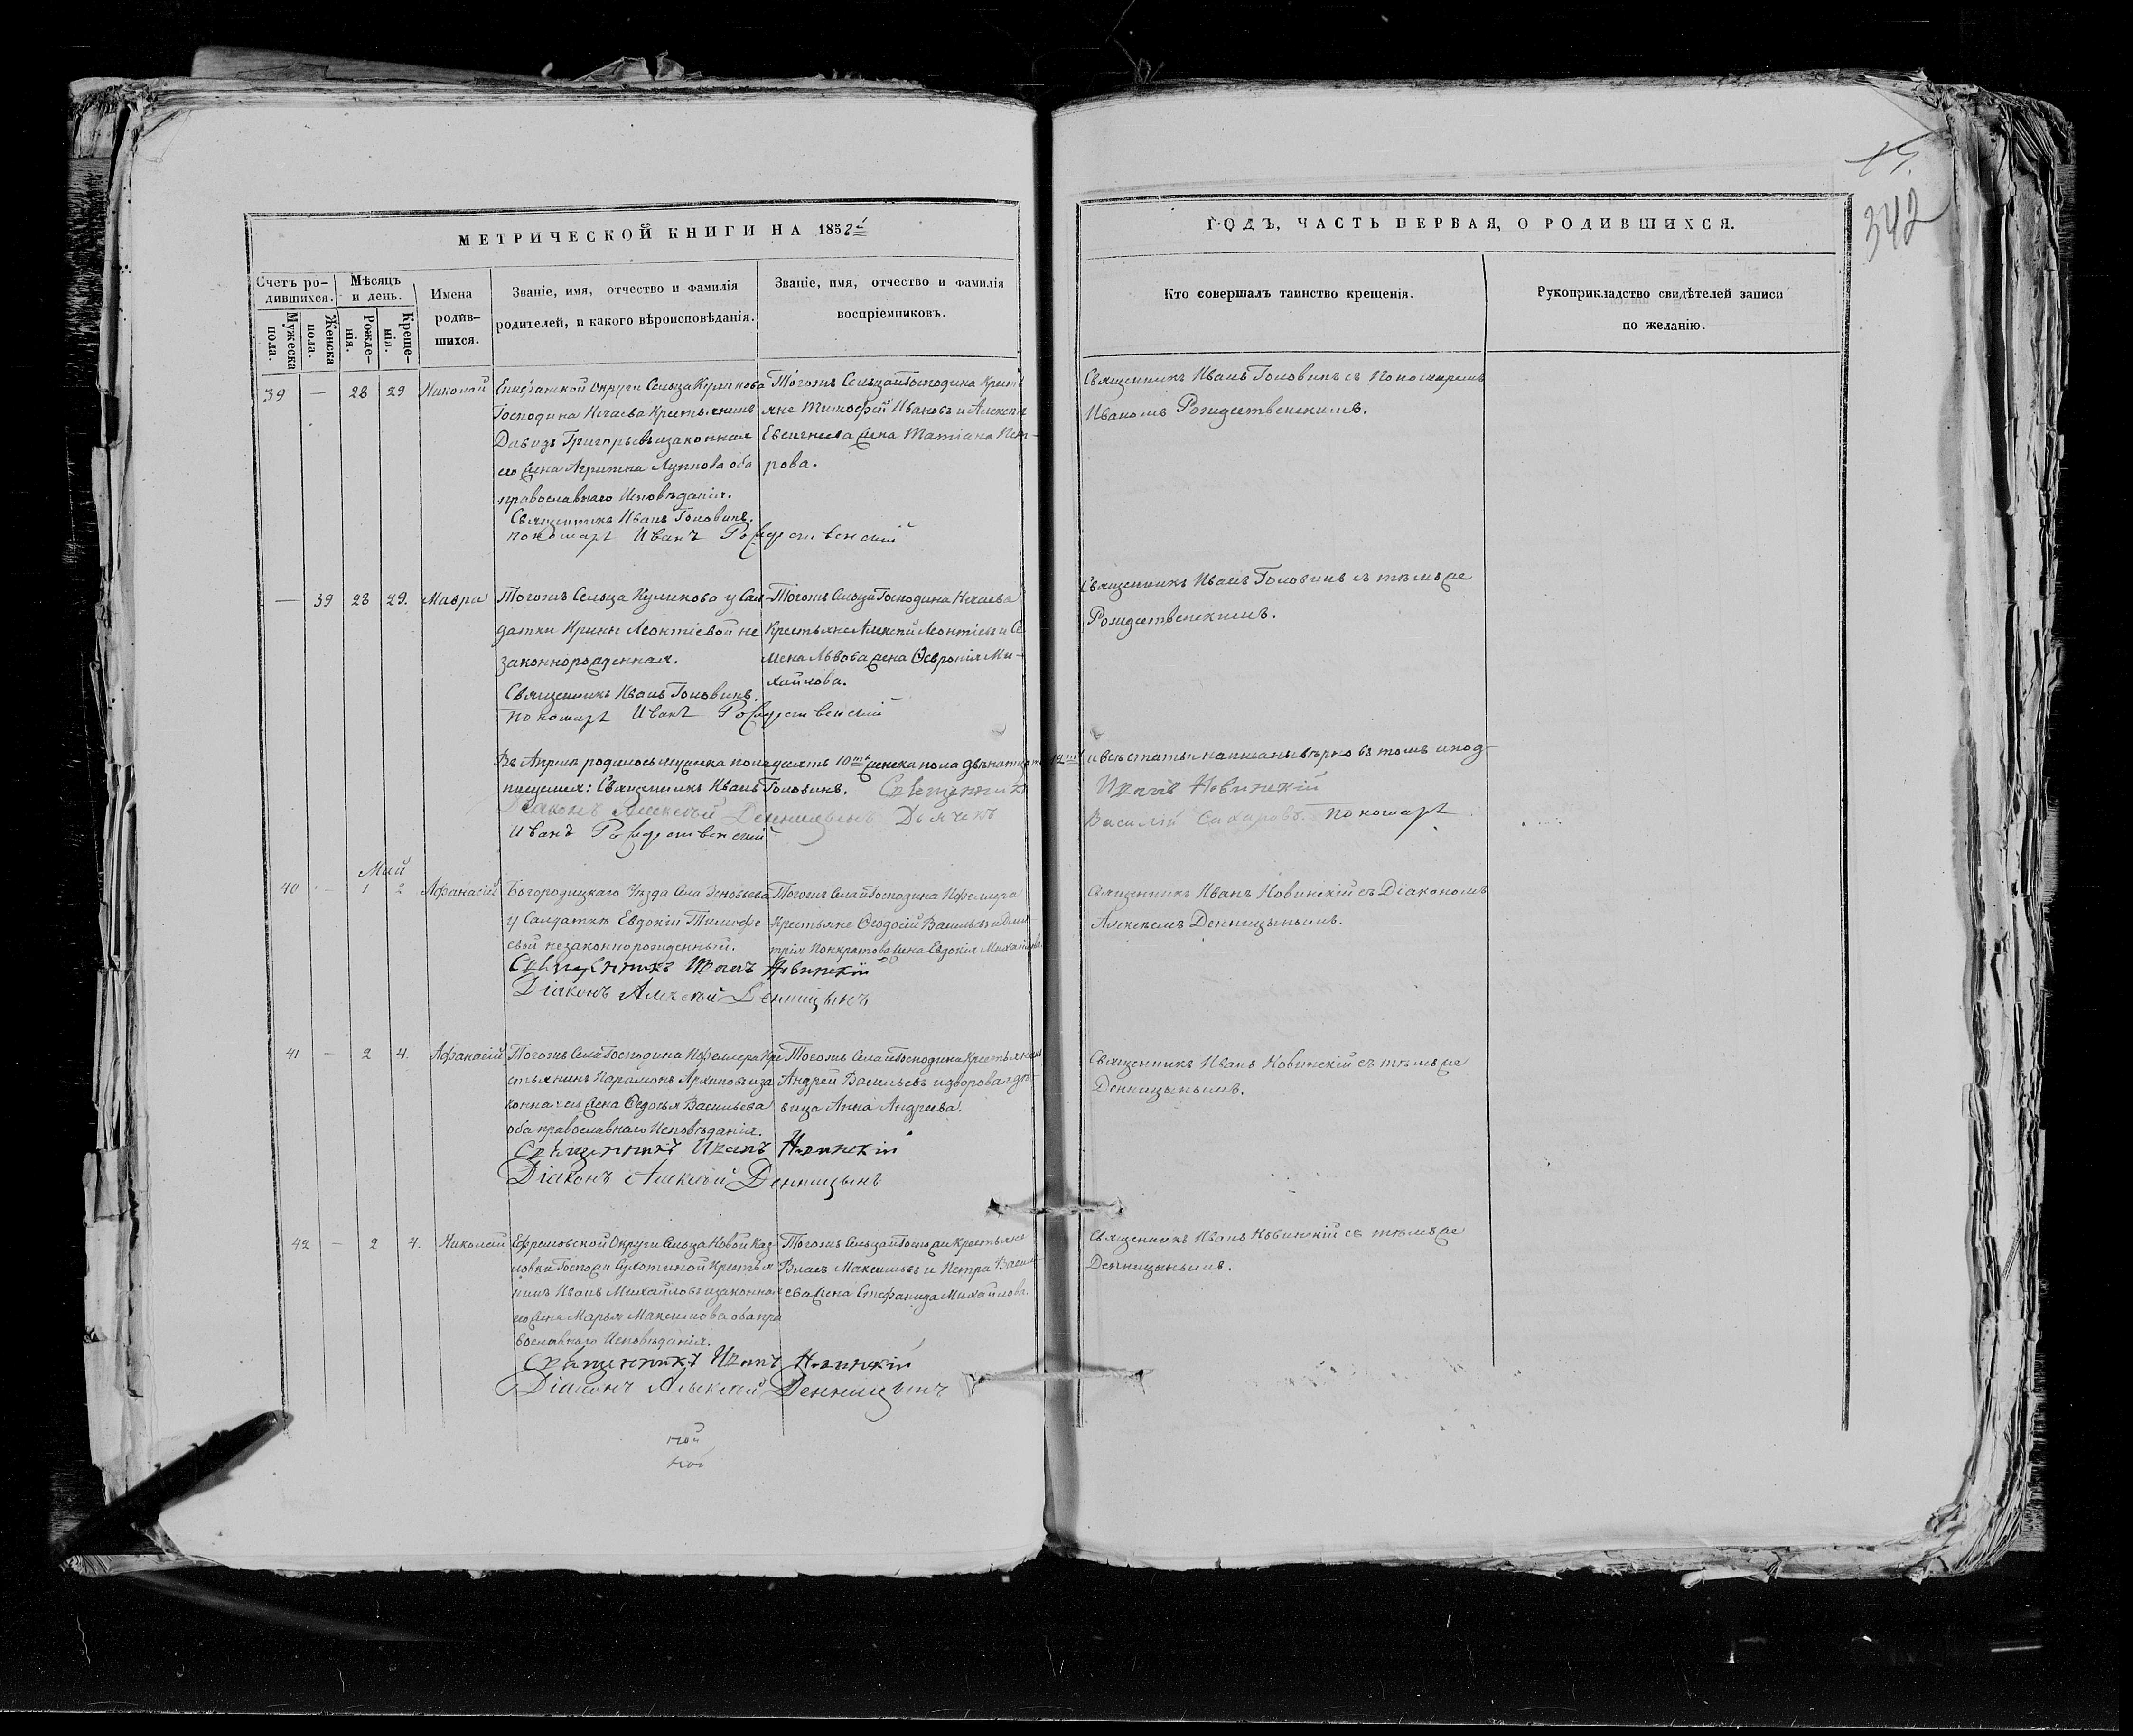 19.
342
МЕТРИЧЕСКОЙ КНИГИ НА 1852й
ГОДЪ, ЧАСТЬ ПЕРВАЯ, О РОДИВШИХСЯ.
Счетъ ро-
дившихся.
Мужеска
пола.
Женска
пола.
Мѣсяцъ
и день.
Рожде-
нія.
Креще-
нія.
Имена
родив-
шихся.
Званіе, имя, отчество и фамилія
родителей, и какого вѣроисповѣданія.
Званіе, имя, отчество и фамилія
воспріемниковъ.
Кто совершалъ таинство крещенія.
Рукоприкладство свидѣтелей записи
по желанію.
39 — 28 29 Николай
Округи Сельца Куликова
Господина Нечаева Крестьянинъ
Давидъ Григорьевъ и законная
его жена Агрипена оба
православнаго Исповѣданія.
Священникъ Иванъ Головинъ.
пономарь Иванъ Рождественскій
Тогожъ Сельца и Господина Кресть
яне Тимофей Ивановъ и Алексѣя
Евсигнеева жена Татіана Пет-
рова.
Священникъ Иванъ Головинъ съ Пономаремъ
Иваномъ Рождественскимъ.
— 39 28 29. Мавра
Тогожъ Сельца Куликова у Сал-
датки Ирины Леонтіевой не
законнорожденная.
Священникъ Иванъ Головинъ.
пономарь Иванъ Рождественскій
Тогожъ Сельца Господина Нечаева
Крестьяне Алексѣй Леонтіевъ и Се
мена Львова жена Ѳеврония Ми-
хайлова.
Священникъ Иванъ Головинъ съ тѣмъ же
Рождественскимъ.
Въ Апрелѣ родилось мужеска пола десять 10ть женска пола двѣнатцать 12ть и всѣ статьи написаны вѣрно въ томъ и под-
писуемся: Священникъ Иванъ Головинъ. Священникъ Иванъ Новинскій
Діаконъ Алексѣй Денницынъ Дьячекъ Василій Сахаровъ. Пономарь
Иванъ Рождественскій
Май
40 — 1 2 Афанасій
Богородицкаго Уѣзда Села
у Салдатки Евдокіи Тимофе-
евой незаконнорожденный.
Священникъ Иванъ Новинскій
Діаконъ Алексѣй Денницынъ
Тогожъ Села и Господина
Крестьяне Ѳеодосій Васильевъ и Дми-
трія Понкратова жена Евдокія Михайлова
Священникъ Иванъ Новинскій съ Діакономъ
Алексѣемъ Денницынымъ.
41 — 2 4. Афанасій
Тогожъ Села Господина Кре
стьянинъ Парамонъ Архиповъ и за
конная его жена Ѳедосья Васильева
оба православнаго Исповѣданія.
Священникъ Иванъ Новинскій
Діаконъ Алексѣй Денницынъ
Тогожъ Села и Господина Крестьянинъ
Андрей Васильевъ и дворовая дѣ-
вица Анна Андреева.
Священникъ Иванъ Новинскій съ тѣмъ же
Денницынымъ.
42 — 2 4. Николай
Ефремовской Округи Сельца Новой Каз-
ловки Госпожи Сухотиной Крестья
нинъ Иванъ Михайловъ и законная
его жена Марья Максимова оба пра
вославнаго Исповѣданія.
Священникъ Иванъ Новинскій
Діаконъ Алексѣй Денницынъ
Тогожъ Сельца и Госпожи Крестьяне
Власъ Максимовъ и Петра Василь
ева жена Стефанида Михайлова.
Священникъ Иванъ Новинскій съ тѣмъ же
Денницынымъ.